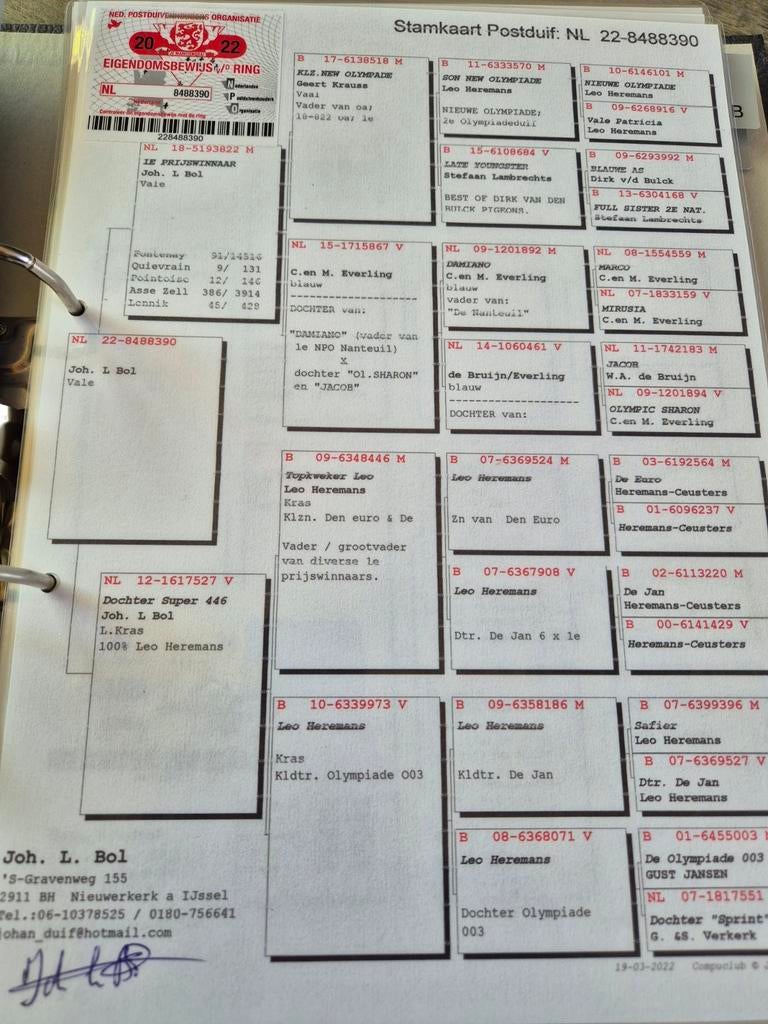 NED. POSTDUIVENHOUDERS ORGANISATIE
20 22
EIGENDOMSBEWIJS v/d RING
NL 8488390
Nederland
Nederlandse
Postduivenhouders
Organisatie
Controleer dit eigendomsbewijs met de ring
228488390
Stamkaart Postduif: NL 22-8488390
NL 18-5193822 M
1E PRIJSWINNAAR
Joh. L Bol
Vale
Fontenay 91/14516
Quievrain 9/ 131
Pointoise 12/ 146
Asse Zell 386/ 3914
Lennik 45/ 428
NL 22-8488390
Joh. L Bol
Vale
NL 12-1617527 V
Dochter Super 446
Joh. L Bol
L.Kras
100% Leo Heremans
B 17-6138518 M
KLZ.NEW OLYMPADE
Geert Krauss
Vaal
Vader van oa;
18-822 oa; 1e
NL 15-1715867 V
C.en M. Everling
blauw
------------------
DOCHTER van:
"DAMIANO" (vader van
1e NPO Nanteuil)
X
dochter "Ol.SHARON"
en "JACOB"
B 09-6348446 M
Topkweker Leo
Leo Heremans
Kras
Klzn. Den euro & De
Vader / grootvader
van diverse 1e
prijswinnaars.
B 10-6339973 V
Leo Heremans
Kras
Kldtr. Olympiade 003
B 11-6333570 M
SON NEW OLYMPIADE
Leo Heremans
NIEUWE OLYMPIADE;
2e Olympiadeduif
B 15-6108684 V
LATE YOUNGSTER
Stefaan Lambrechts
BEST OF DIRK VAN DEN
BULCK PIGEONS.
NL 09-1201892 M
DAMIANO
C.en M. Everling
blauw
vader van:
"De Nanteuil"
NL 14-1060461 V
de Bruijn/Everling
blauw
------------------
DOCHTER van:
B 07-6369524 M
Leo Heremans
Zn van Den Euro
B 07-6367908 V
Leo Heremans
Dtr. De Jan 6 x 1e
B 09-6358186 M
Leo Heremans
Kldtr. De Jan
B 08-6368071 V
Leo Heremans
Dochter Olympiade
003
B 10-6146101 M
NIEUWE OLYMPIADE
Leo Heremans
B 09-6268916 V
Vale Patricia
Leo Heremans
B 09-6293992 M
BLAUWE AS
Dirk v/d Bulck
B 13-6304168 V
FULL SISTER 2E NAT.
Stefaan Lambrechts
NL 08-1554559 M
MARCO
C.en M. Everling
NL 07-1833159 V
MIRUSIA
C.en M. Everling
NL 11-1742183 M
JACOB
W.A. de Bruijn
NL 09-1201894 V
OLYMPIC SHARON
C.en M. Everling
B 03-6192564 M
De Euro
Heremans-Ceusters
B 01-6096237 V
Heremans-Ceusters
B 02-6113220 M
De Jan
Heremans-Ceusters
B 00-6141429 V
Heremans-Ceusters
B 07-6399396 M
Safier
Leo Heremans
B 07-6369527 V
Dtr. De Jan
Leo Heremans
B 01-6455003
De Olympiade 003
GUST JANSEN
NL 07-1817551
Dochter "Sprint"
G. &S. Verkerk
Joh. L. Bol
'S-Gravenweg 155
2911 BH Nieuwerkerk a IJssel
Tel.:06-10378525 / 0180-756641
johan_duif@hotmail.com
19-03-2022 Compuclub ©
B